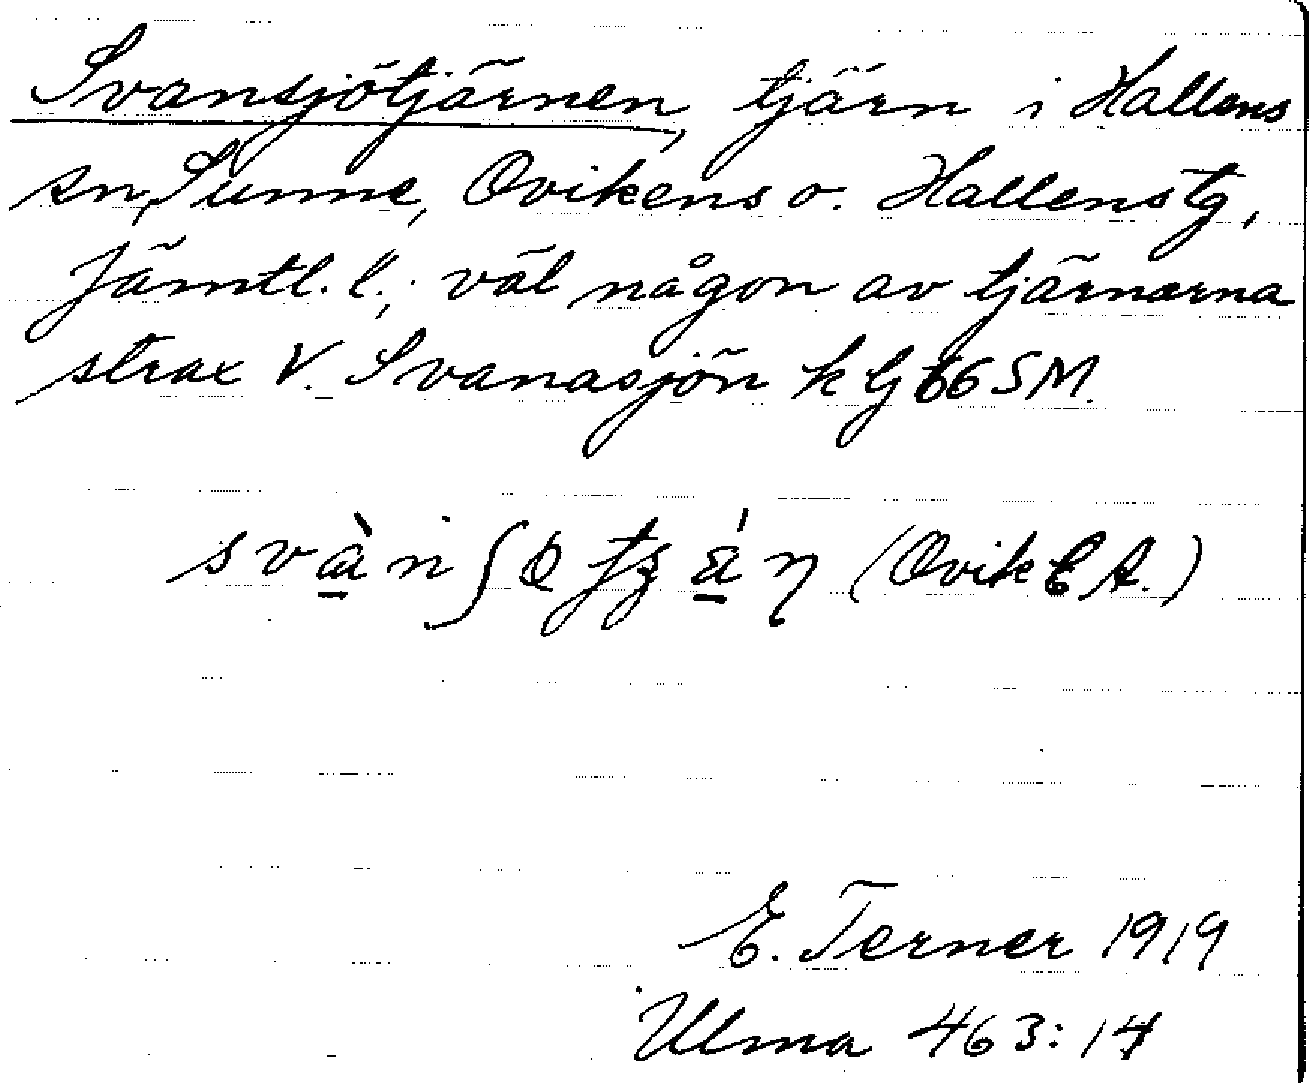 Svansjötjärnen, tjärn i Hallens
sn, Sunne, Ovikens o. Hallens tg,
Jämtl. l.; väl någon av tjärnarna
strax V. Svanasjön k Gj 66 SM.
(Ovik E A.)
E. Terner 1919
Ulma 463:14